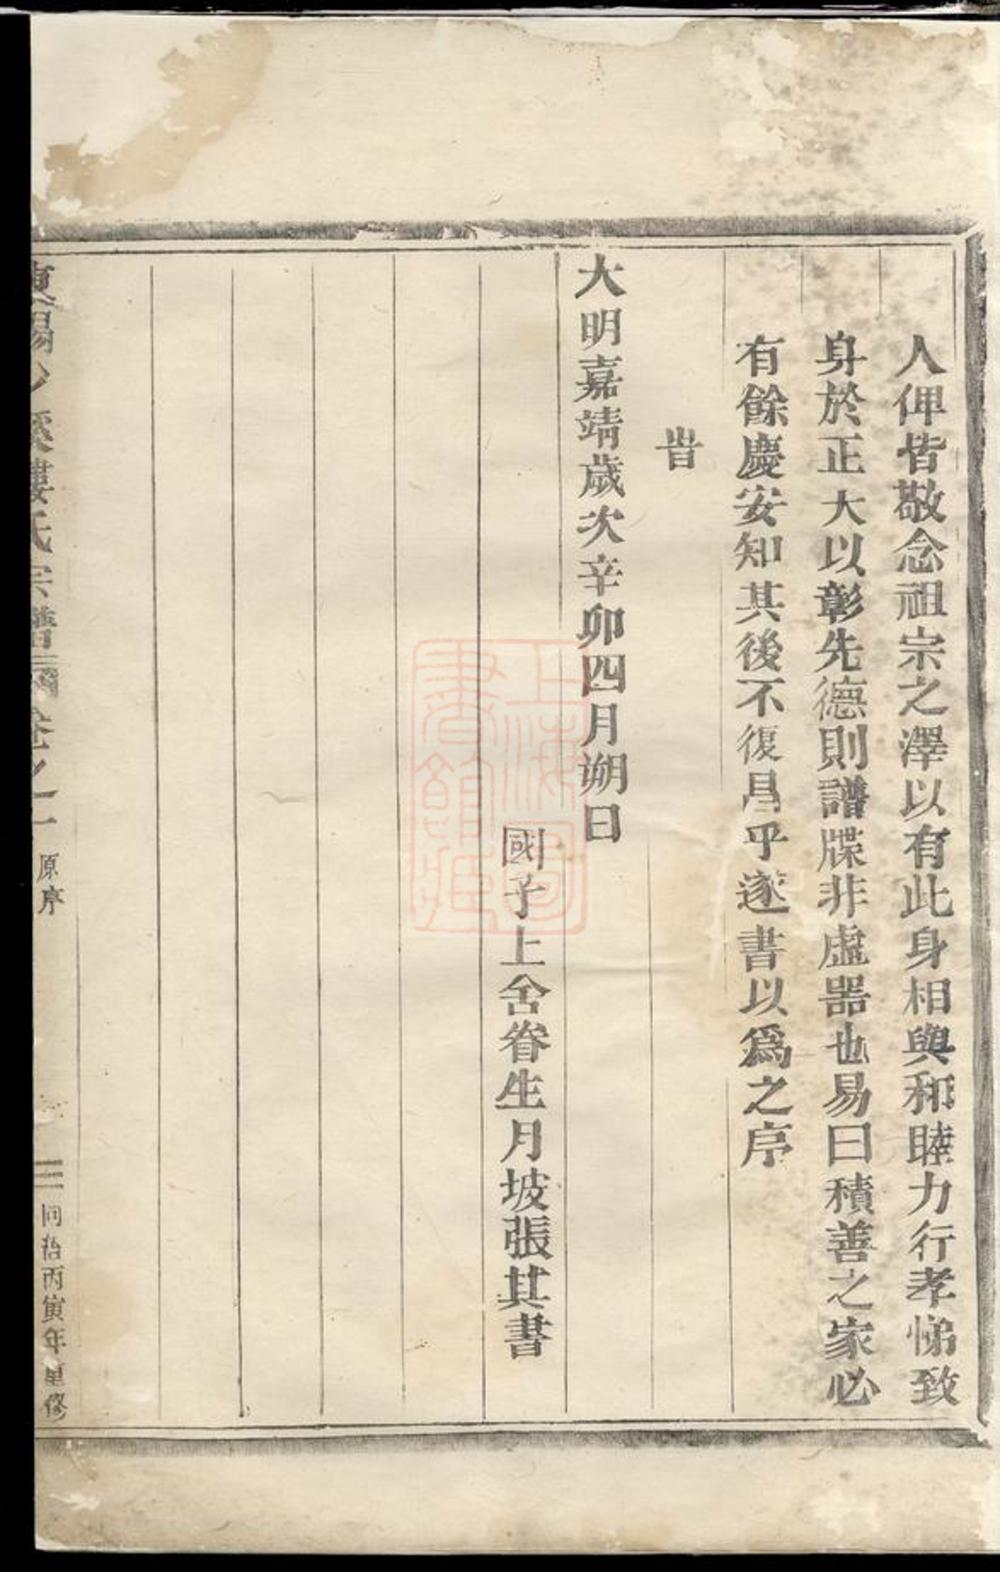 人俾皆敬念祖宗之澤以有此身相與和睦力行孝悌致
身於正大以彰先德則譜牒非虛器也易曰積善之家必
有餘慶安知其後不復昌乎遂書以爲之序
旹
大明嘉靖歲次辛卯四月朔日
國子上舍眷生月坡張其書
東陽 溪樓氏宗譜 卷之一 原序 三 同治丙寅年重修
上海圖書館藏